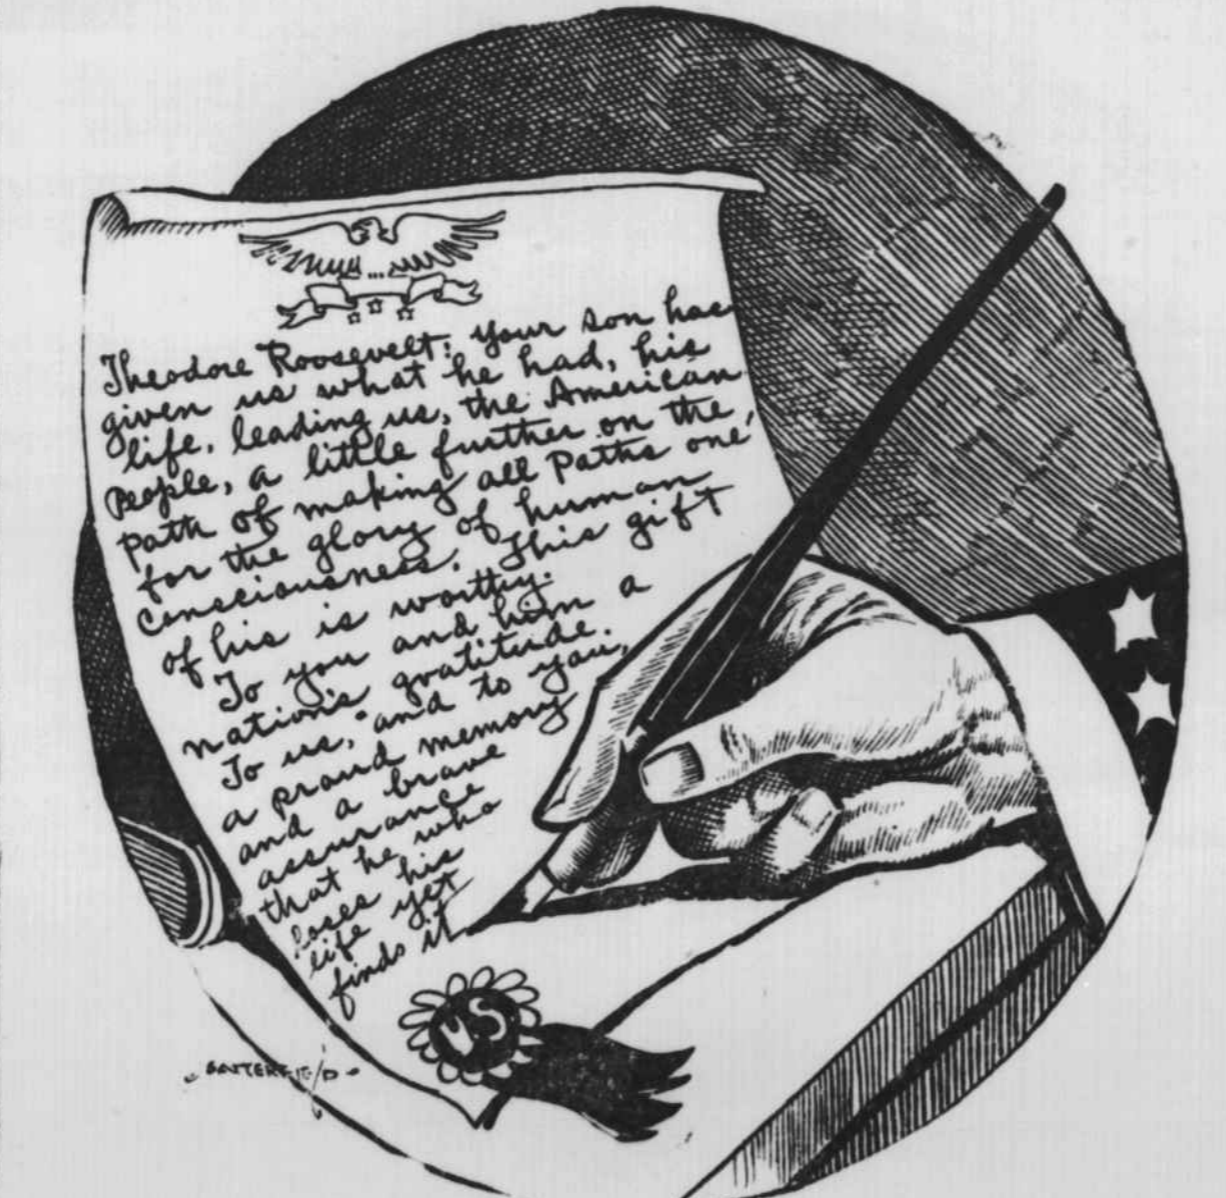 Theodore Roosevelt: your son has
given us what he had, his
life, leading us, the American
people, a little further on the
path of making all paths one,
for the glory of human
consciousness. This gift
of his is worthy.
To you and him a
nation's gratitude.
To us, and to you,
a proud memory
and a brave
assurance
that he who
loses his
life yet
finds it
US